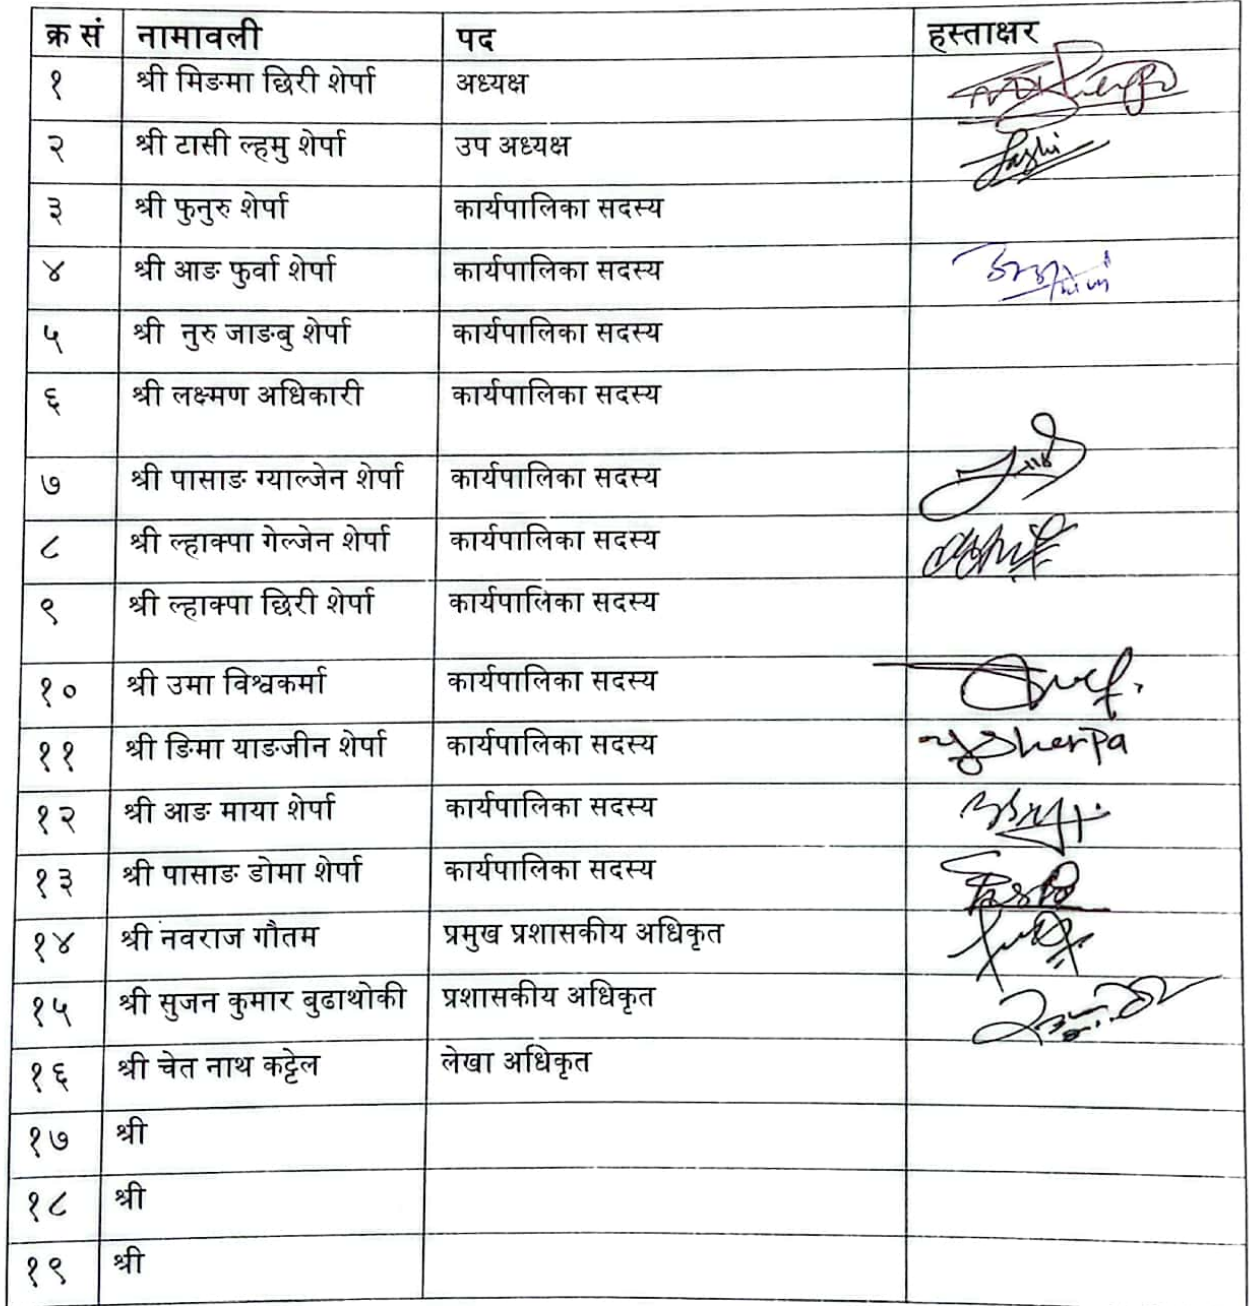 क्र सं नामावली पद हस्ताक्षर
१ श्री मिङमा छिरी शेर्पा अध्यक्ष
२ श्री टासी ल्हमु शेर्पा उप अध्यक्ष
३ श्री फुनुरु शेर्पा कार्यपालिका सदस्य
४ श्री आङ फुर्वा शेर्पा कार्यपालिका सदस्य
५ श्री नुरु जाङबु शेर्पा कार्यपालिका सदस्य
६ श्री लक्ष्मण अधिकारी कार्यपालिका सदस्य
७ श्री पासाङ ग्याल्जेन शेर्पा कार्यपालिका सदस्य
८ श्री ल्हाक्पा गेल्जेन शेर्पा कार्यपालिका सदस्य
९ श्री ल्हाक्पा छिरी शेर्पा कार्यपालिका सदस्य
१० श्री उमा विश्वकर्मा कार्यपालिका सदस्य
११ श्री ङिमा याङजीन शेर्पा कार्यपालिका सदस्य Sherpa
१२ श्री आङ माया शेर्पा कार्यपालिका सदस्य
१३ श्री पासाङ डोमा शेर्पा कार्यपालिका सदस्य
१४ श्री नवराज गौतम प्रमुख प्रशासकीय अधिकृत
१५ श्री सुजन कुमार बुढाथोकी प्रशासकीय अधिकृत
१६ श्री चेत नाथ कट्टेल लेखा अधिकृत
१७ श्री
१८ श्री
१९ श्री